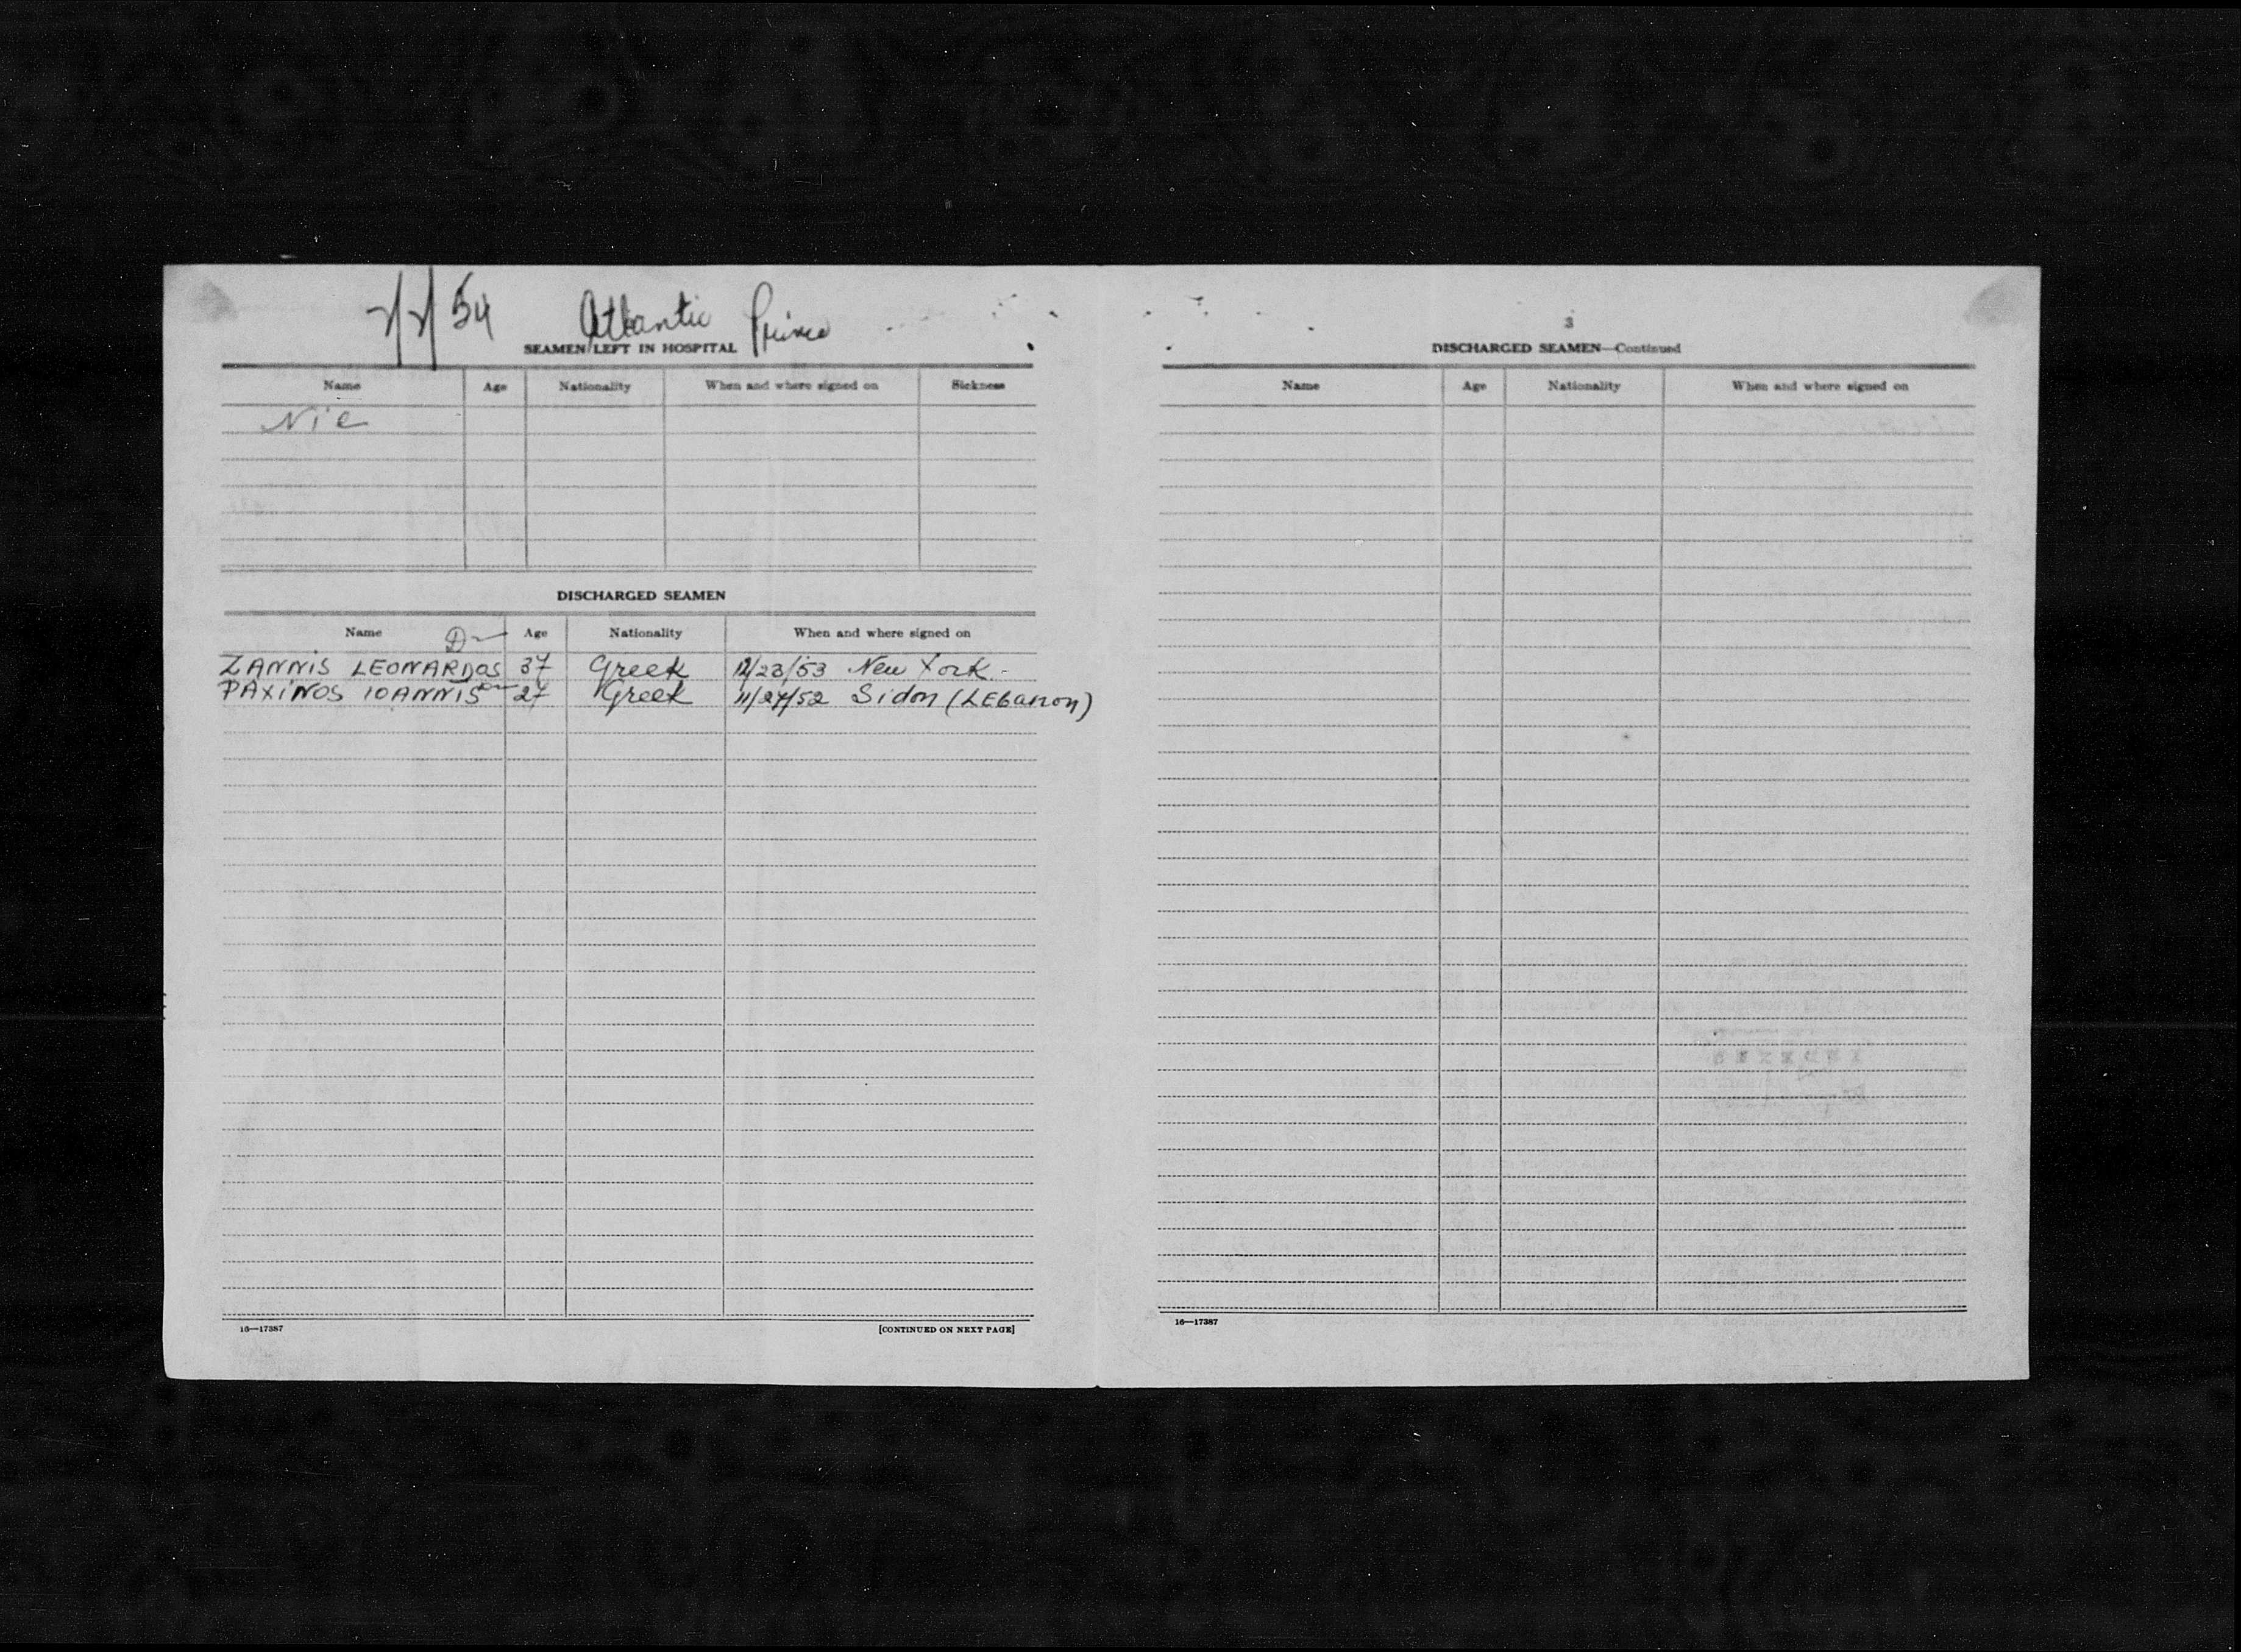 2/2/54 Atlantic Prince
SEAMEN LEFT IN HOSPITAL
Name Age Nationality When and where signed on Sickness
Nil
DISCHARGED SEAMEN
Name Age Nationality When and where signed on
ZANNIS LEONARDOS 37 Greek 12/23/53 New York.-
PAXINOS IOANNIS 27 Greek 11/27/52 Sidon (LEbanon)
16—17387 [CONTINUED ON NEXT PAGE]
3
DISCHARGED SEAMEN—Continued
Name Age Nationality When and where signed on
16—17387